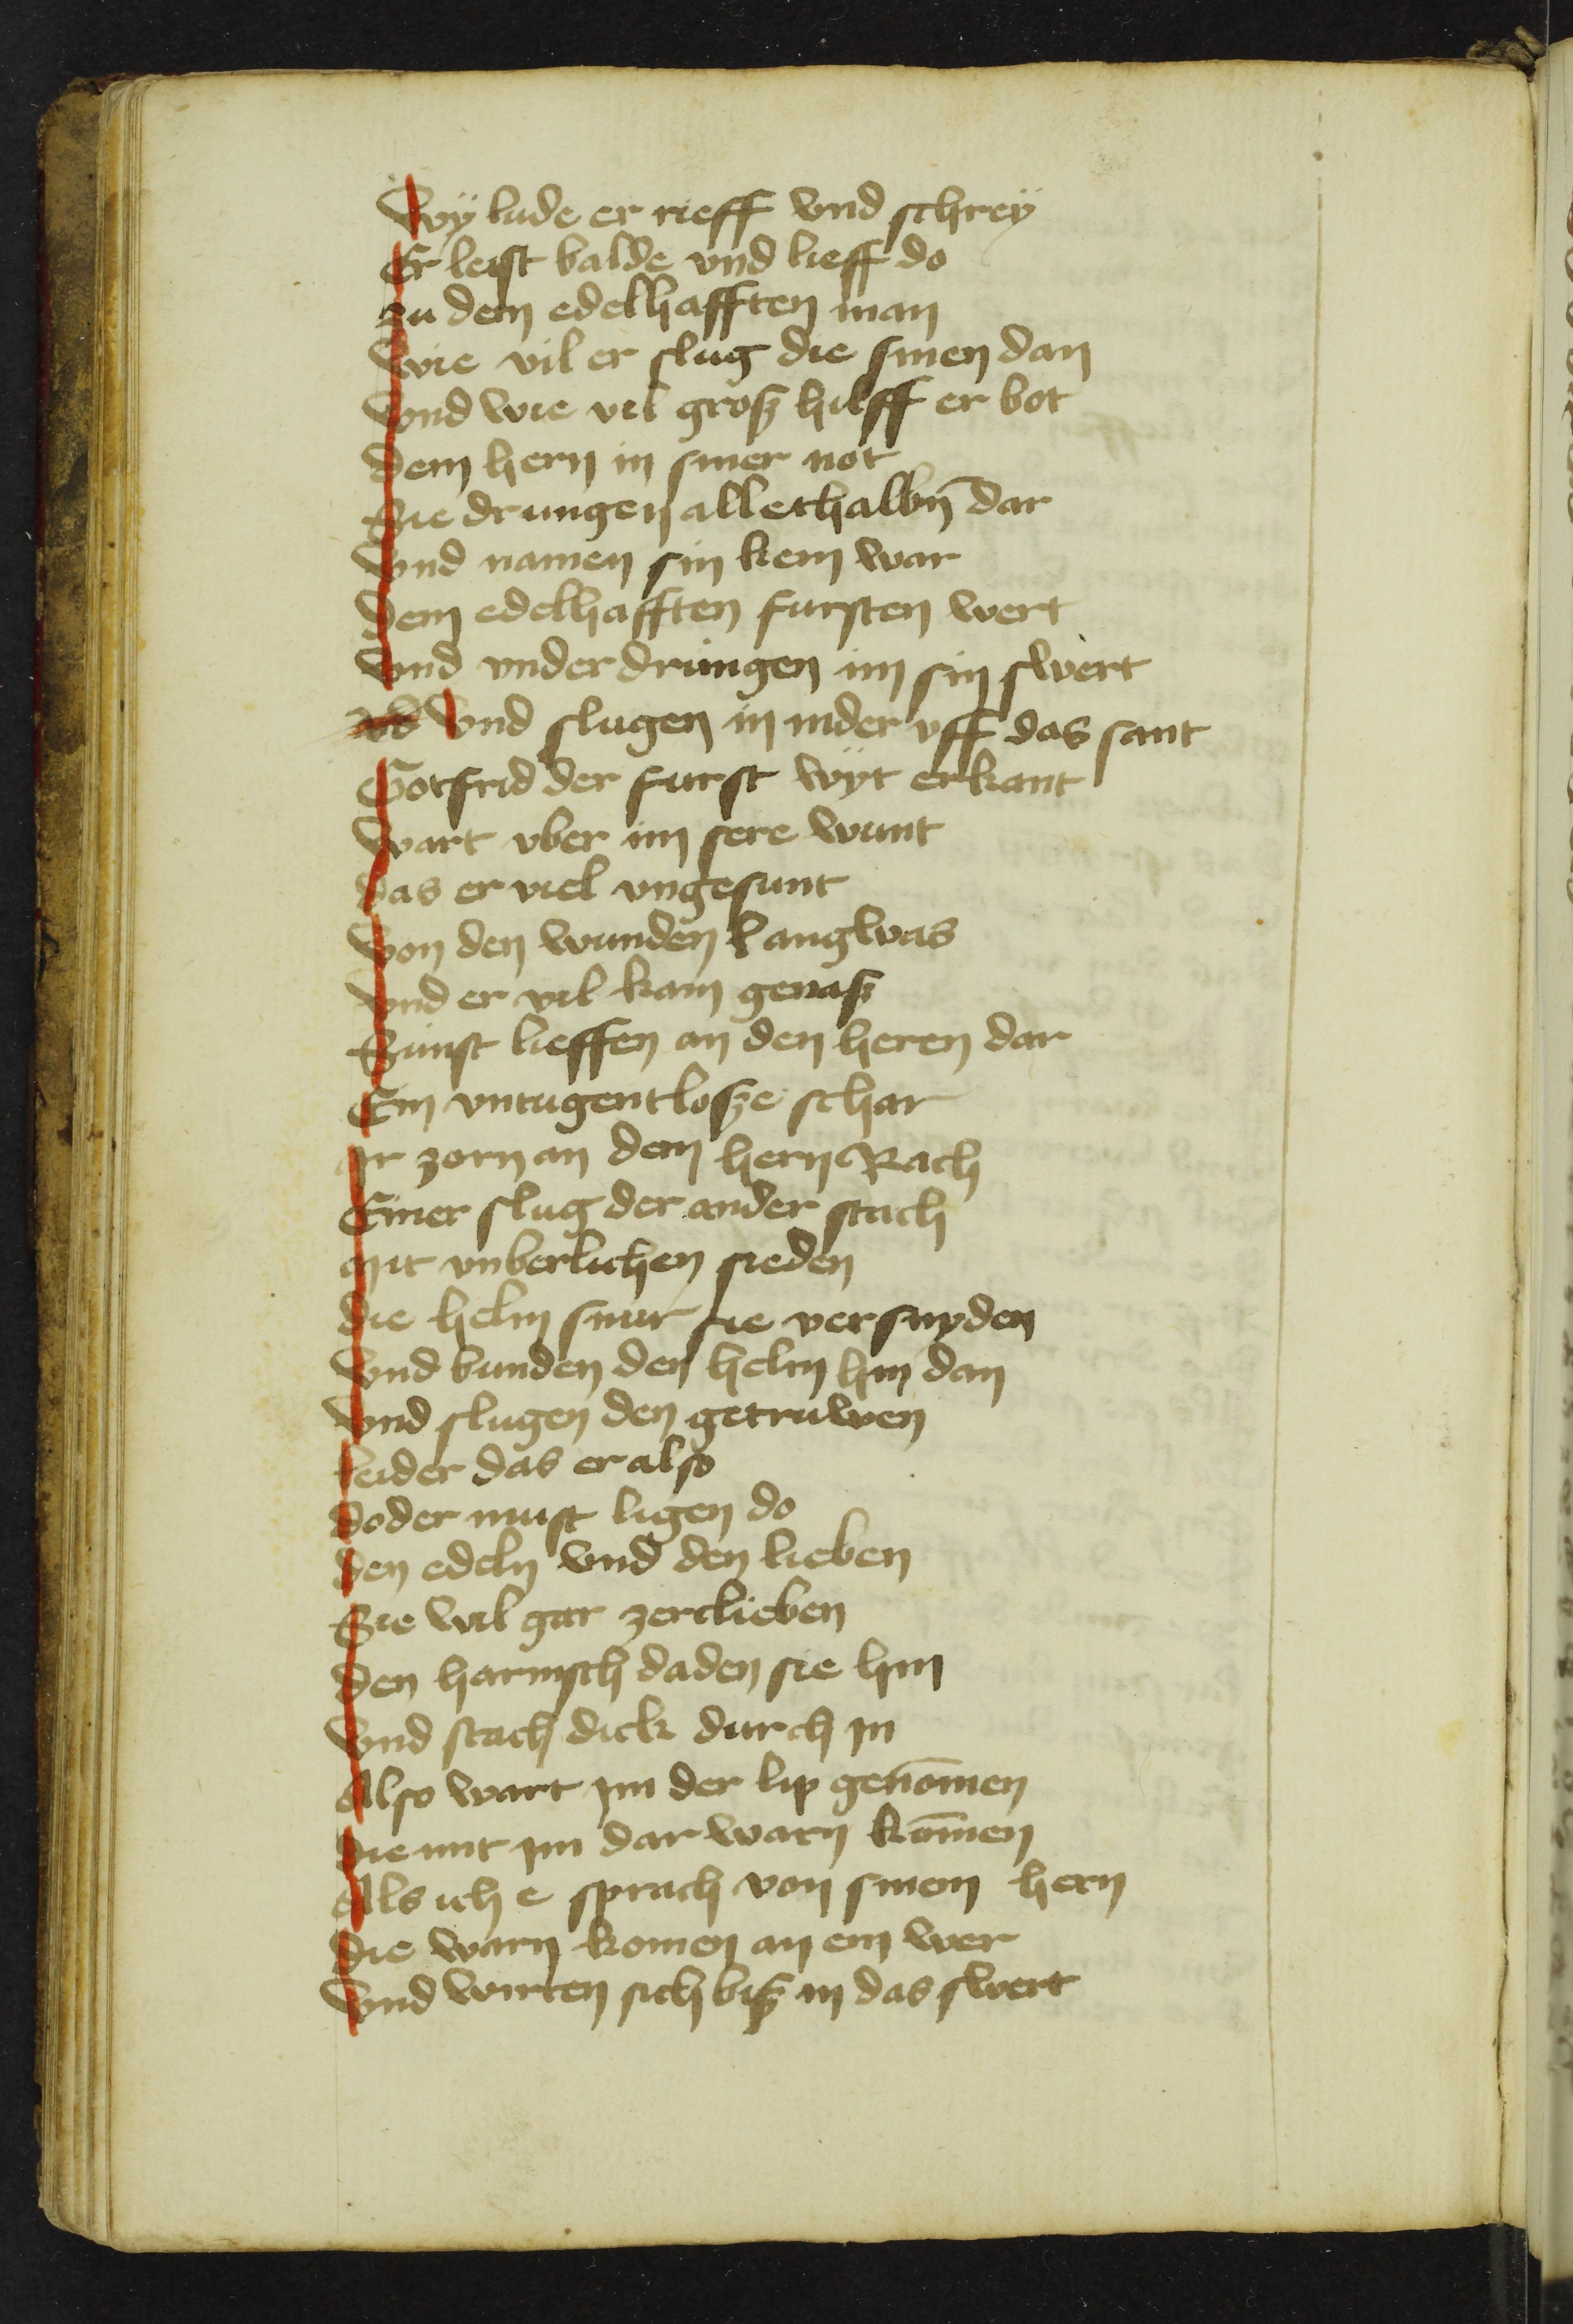 Wÿ lude er rieff vnd schreÿ
Er leist balde vnd lieff do
zu dem edelhafften man
wie vil er slug die sinen dan
vnd wie vil grosz hilff er bot
dem hern in siner not
Sie drungen allethalbn̄ dar
vnd namen sin kein war
dem edelhafften fursten wert
vnd vnder drungen im sin swert
vnd slugen in nider vff das sant
Gotfrid der furst wÿt erkant
wart vber im sere wunt
das er viel vngesunt
von den wunden lang was
vnd er vil kam genasz
Sunst lieffen an den heren dar
Ein vntugentlosze schar
Ir zorn an dem hern Rach
Einer slug der ander stach
mit vnberlichen sieden
die helm snur sie versnyden
vnd bunden den helm hin dan
vnd slugen den getruwen
leider das er also
doder must ligen do
den edeln vnd den lieben
Sie wil gar zerclieben
den harnisch daden sie hin
vnd stach dick durch in
Also wart im der lip genōmen
die mit im dar warn kōmen
Als ich e sprach von sinem hern
die warn komen an ein wer
vnd wirten sich bisz in das swert